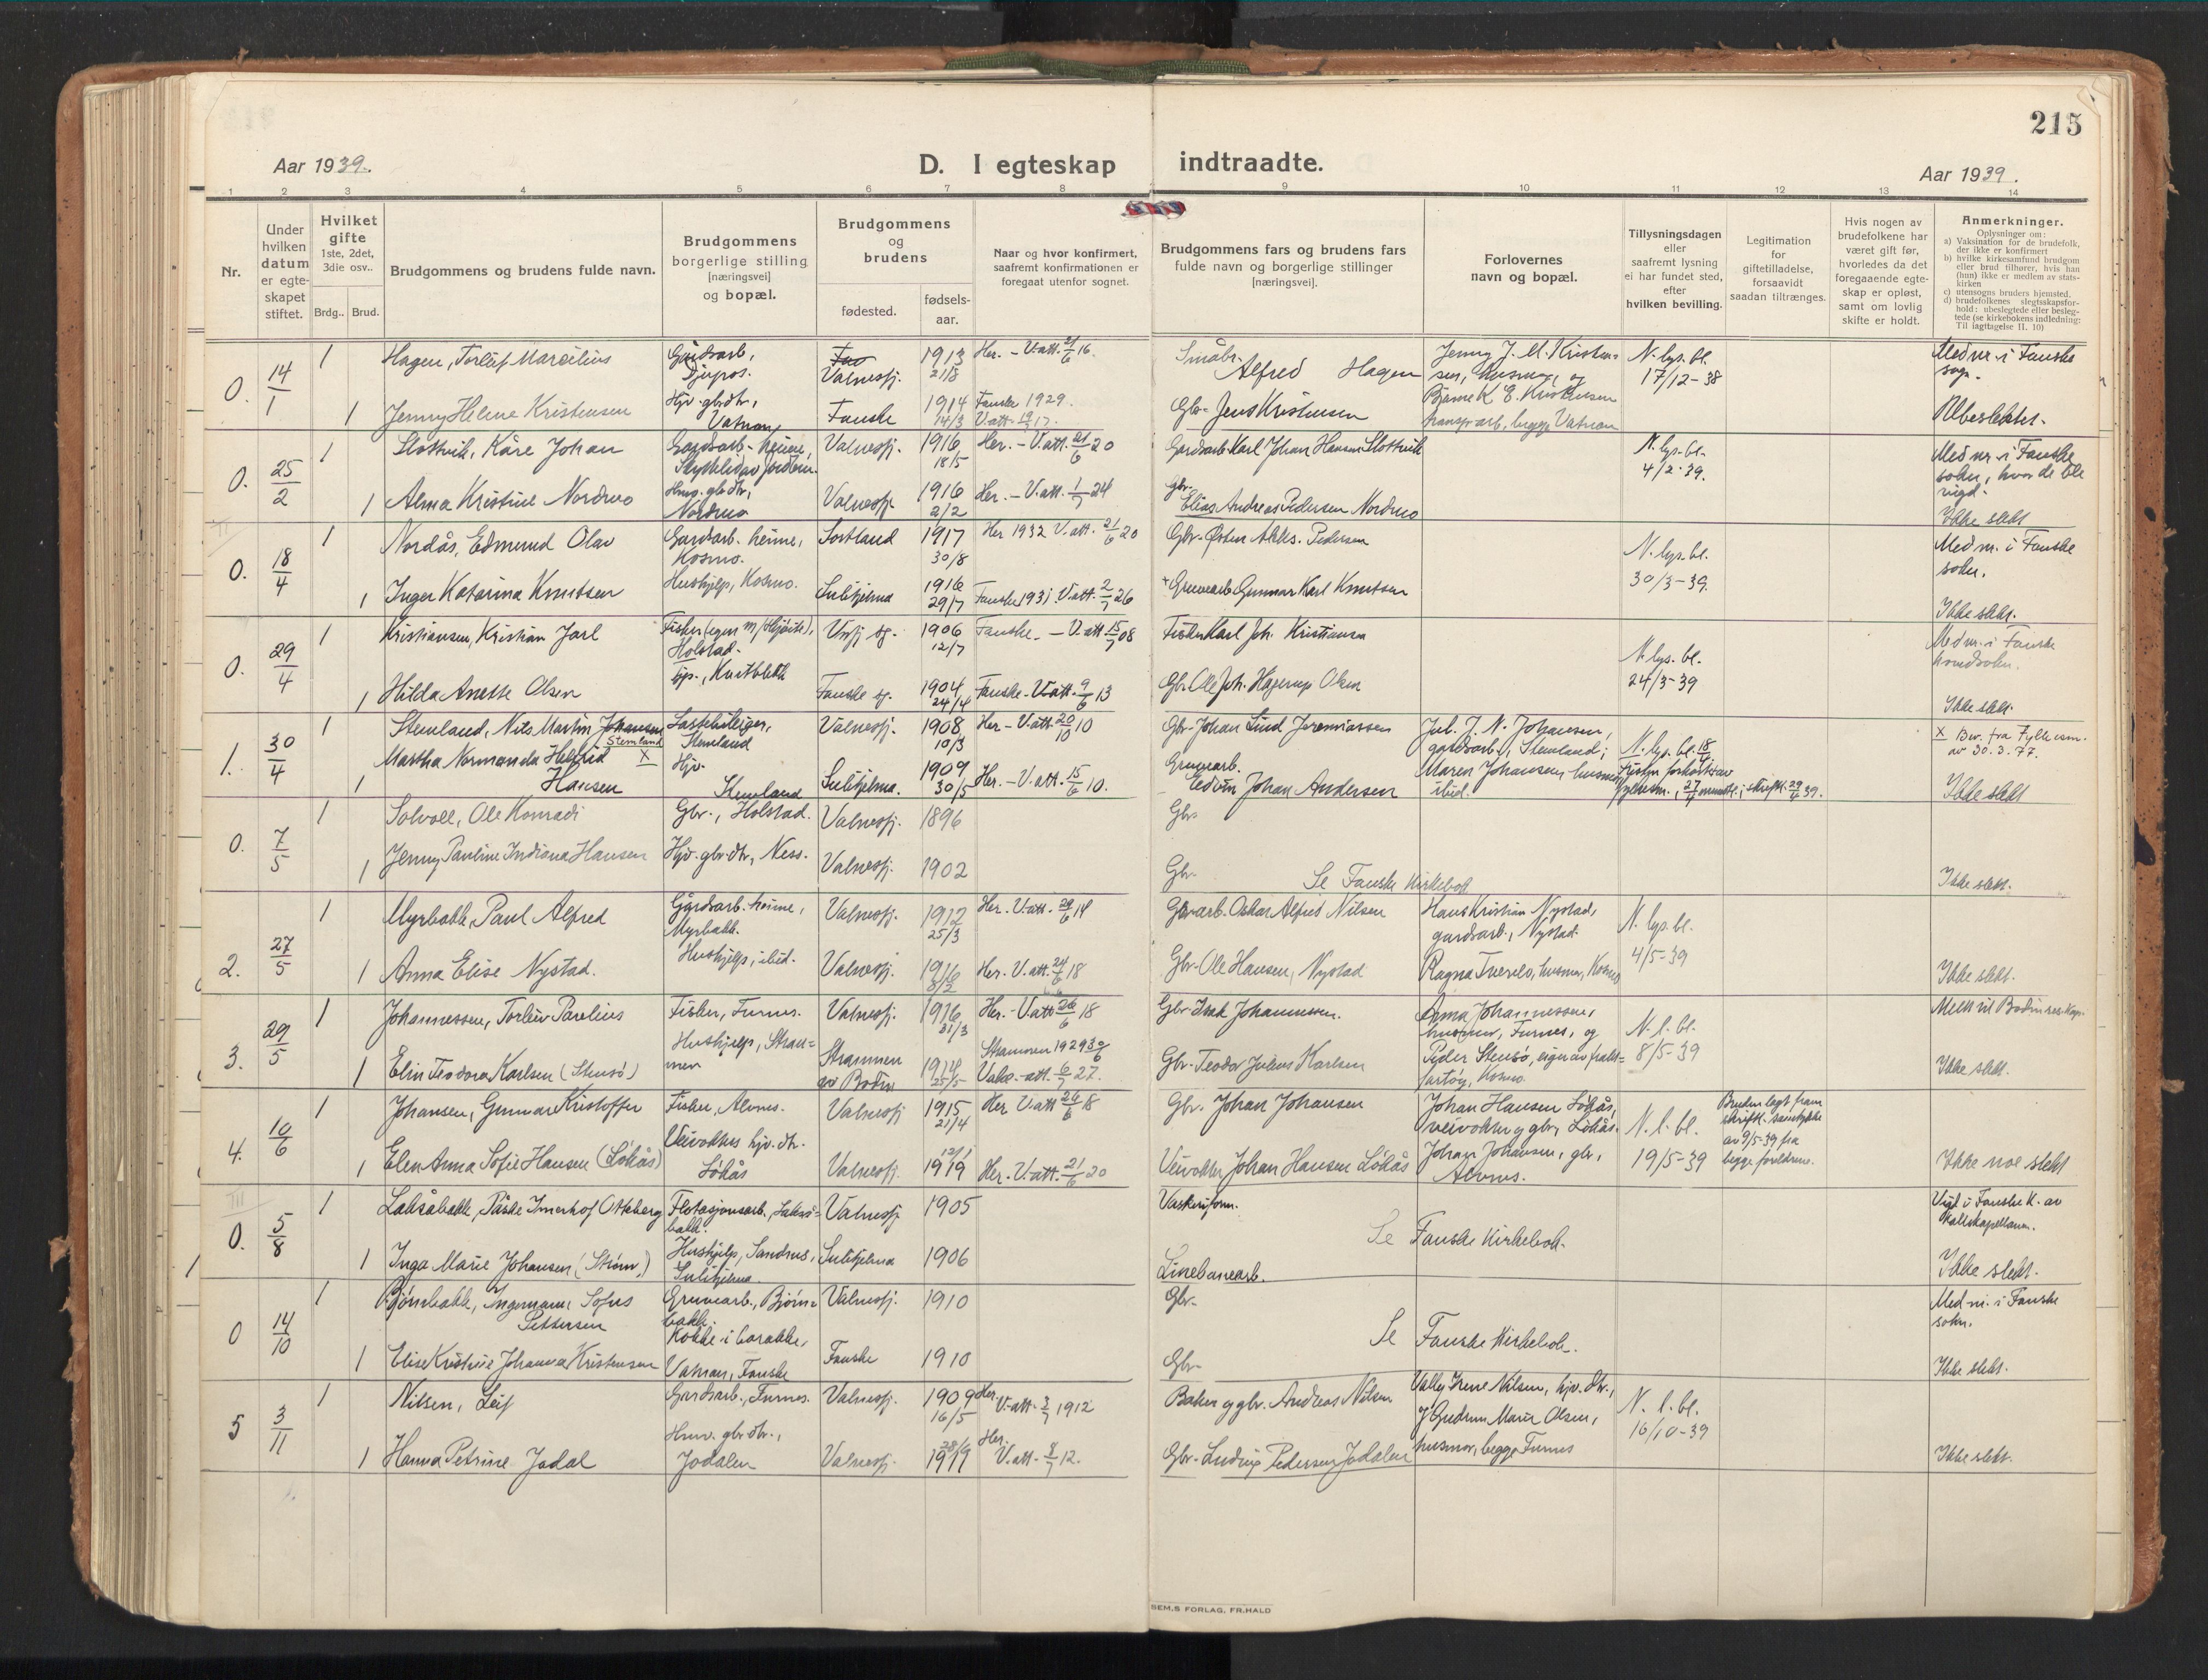 215
Aar 1939.
D. I egteskap indtraadte.
Aar 1939.
1 2 3 4 5 6 7 8 9 10 11 12 13 14
Nr.
Under hvilken datum er egte-skapet stiftet.
Hvilket gifte 1ste, 2det, 3die osv..
Brdg.. Brud.
Brudgommens og brudens fulde navn.
Brudgommens borgerlige stilling [næringsvei] og bopæl.
Brudgommens og brudens
fødested.
fødsels-aar.
Naar og hvor konfirmert, saafremt konfirmationen er foregaat utenfor sognet.
Brudgommens fars og brudens fars fulde navn og borgerlige stillinger [næringsvei].
Forlovernes navn og bopæl.
Tillysningsdagen eller saafremt lysning ei har fundet sted, efter hvilken bevilling.
Legitimation for giftetilladelse, forsaavidt saadan tiltrænges.
Hvis nogen av brudefolkene har været gift før, hvorledes da det foregaaende egte-skap er opløst, samt om lovlig skifte er holdt.
Anmerkninger.
Oplysninger om:
a) Vaksination for de brudefolk, der ikke er konfirmert
b) hvilke kirkesamfund brudgom eller brud tilhører, hvis han (hun) ikke er medlem av stats-kirken
c) utensogns bruders hjemsted.
d) brudefolkenes slegtsskapsfor-hold: ubeslegtede eller besleg-tede (se kirkebokens indledning: Til iagttagelse II. 10)
0. 14/1 1 Hagen, Torleif Marcelius Gårdsarb., Djupos. Valnesfj. 1913 21/8 Her. - V.att. 21/6 16. Småbr. Alfred Hagen Jenny J. M. Kristensen, husmor, og N. lys. bl. 17/12-38 Med nr. i Fauske sogn.
1 Jenny Helene Kristensen Hjv. gbrdtr., Vatnan Fauske 1914 14/3 Fauske 1929. V.att. Gbr. Jens Kristensen Bjarne K. E. Kristensen transp.arb., begge Vatnan Ubeslektet.
0. 25/2 1 Slottvik, Kåre Johan Gardsarb. heime, Valnesfj. 1916 18/5 Her. - V.att. 21/6 20 Gardsarb. Karl Johan Hansen Slottvik N. lys. bl. 4/2-39. Med nr. i Fauske sokn, hvor de ble vigd.
1 Alma Kristine Nordmo Hmv. gbrdtr., Nordmo Valnesfj. 1916 2/2 Her. - V.att. 1/7 24 Gbr. Elias Andreas Pedersen Nordmo Ikke slekt
0. 18/4 1 Nordås, Edmund Olav Gardsarb. heime, Kosmo. Sortland 1917 30/8 Her 1932 V.att. 21/6 20 Gbr. Østen Aleks. Pedersen N. lys. bl. 30/3-39. Med nr. i Fauske sokn.
1 Inger Katarina Knutsen Hushjelp, Kosmo. Sulitjelma 1916 29/7 Fauske 1931. V.att. 2/7 26 + Gruvearb. Gunnar Karl Knutsen Ikke slekt.
0. 29/4 1 Kristiansen, Kristian Jarl Fisker Holstad. 1906 12/7 Fauske - V.att. 15/7 08 Fisker Karl Joh. Kristiansen N. lys. bl. 24/3-39 Med nr. i Fauske hovedsokn.
1 Hilda Anette Olsen Fauske sg. 1904 24/4 Fauske - V.att. 9/6 13 Gbr. Ole Joh. Hagerup Olsen Ikke slekt.
1. 30/4 1 Stemland, Nils Martin Johansen Lastebileiger, Stemland Valnesfj. 1908 10/3 Her - V.att. 20/10 10 Gbr. Johan Lind Jeremiassen Jul. J. N. Johansen, gardsarb., Stemland; N. lys. bl. 18/4 X Bev. fra Fylkesm. av 30.3.77.
1 Martha Normanda Helfrid Stemland X Hansen Hjv. Stemland Sulitjelma. 1909 30/5 Her. - V.att. 15/6 10. Gruvearb. Edvin Johan Andersen Maren Johansen, husmor, ibid. Ikke slekt
0. 7/5 1 Solvoll, Ole Konradi Gbr., Holstad. Valnesfj. 1896 Gbr.
1 Jenny Pauline Indiana Hansen Hjv. gbrdtr., Ness. Valnesfj. 1902 Gbr. Se Fauske kirkebok Ikke slekt.
2. 27/5 1 Myrbakk, Paul Alfred Gårdsarb. heime, Myrbakk. Valnesfj. 1912 25/3 Her. V.att. 29/6 14 Oskar Alfred Nilsen Hans Kristian Nystad, gardsarb., Nystad. N. lys. bl. 4/5-39
1 Anna Elise Nystad. Hushjelp, ibid. Valnesfj. 1916 8/2 Her. V.att. 24/6 18 Gbr. Ole Hansen, Nystad Ragna Tverelv, husmor, Kosmo Ikke slekt.
3. 29/5 1 Johannessen, Torleiv Parelius Fisker, Furnes. Valnesfj. 1916 31/3 Her. - V.att. 26/6 18 Gbr. Isak Johannessen. Anna Johannessen, husmor, Furnes, og N. l. bl. 8/5-39 Meldt til Bodin res. kap.
1 Elin Teodora Karlsen (Stensø) Hushjelp, Straumen Straumen av Bodin 1914 25/5 Straumen 1929 V.att. 6/7 27. Gbr. Teodor Julius Karlsen Peder Stensø, eigar av fraktfartøy, Kosmo. Ikke slekt.
4. 10/6 1 Johansen, Gunnar Kristoffer Fisker, Alvnes. Valnesfj 1915 21/4 Her V.att 26/6 18 Gbr. Johan Johansen Johan Hansen Løkås, veivokter og gbr, Løkås. N. l. bl. 19/5-39 Bruden lagt fram skriftl. samtykke av 9/5-39 fra begge foreldrene.
1 Elen Anna Sofie Hansen (Løkås) Veivokters hjv. dtr. Løkås Valnesfj. 12/1 1919 Her. V.att. 21/6 20 Veivokter Johan Hansen Løkås Johan Johansen, gbr., Alvnes. Ikke noe slekt
0. 5/8 1 Laksåbakk, Påske Imerhof Otteberg Flotasjonsarb., Laksåbakk. Valnesfj 1905 Vaskeriform. Vigd i Fauske k. av kallskapellanen.
Se Fauske kirkebok.
1 Inga Marie Johansen (Strøm) Hushjelp, Sandnes, Sulitjelma. Sulitjelma 1906 Linebanearb. Ikke slekt.
0 14/10 1 Bjørnbakk, Ingemann Sofus Pettersen Gruvearb., Bjørnbakk. Valnesfj. 1910 Gbr. Med nr. i Fauske sokn.
Se Fauske kirkebok.
1 Elise Kristine Johanna Kristensen Kokke i barakke, Vatnan, Fauske Fauske 1910 Gbr. Ikke slekt.
5 3/11 1 Nilsen, Leif Gardsarb., Furnes. Valnesfj. 1909 16/5 Her. V.att. 3/7 1912 Baker og gbr. Andreas Nilsen Vally Irene Nilsen, hjv. dtr., N. l. bl. 16/10-39
1 Hanna Petrine Jodal Hmv. gbr.dtr., Jodalen Valnesfj. Her. V.att. 8/7 12. Gbr. Ludvig Pedersen Jodalen og Gudrun Marie Olsen, husmor, begge Furnes Ikke slekt.
SEM.S FORLAG, FR.HALD